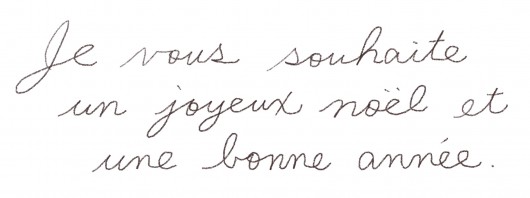 Je vous souhaite
un joyeux noël et
une bonne année.